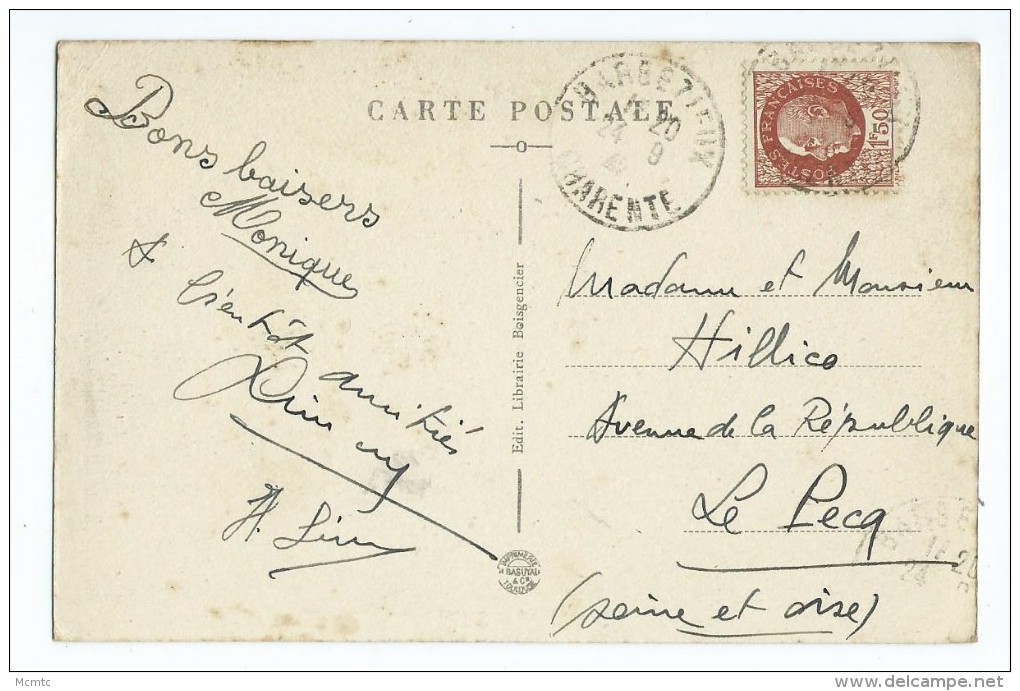 CARTE POSTALE
BARBEZIEUX
24 8
CHARENTE
POSTES FRANÇAISES
1F50
Bons baisers
Monique
& bientôt
amitiés
Edit. Librairie Boisgencier
Madame et Monsieur
Hillico
Avenue de la République
Le Pecq
(Seine et oise)
IMPRIMERIE
BASUYAU
& Cie
TOULOUSE
Mcmtc
www.delcampe.net